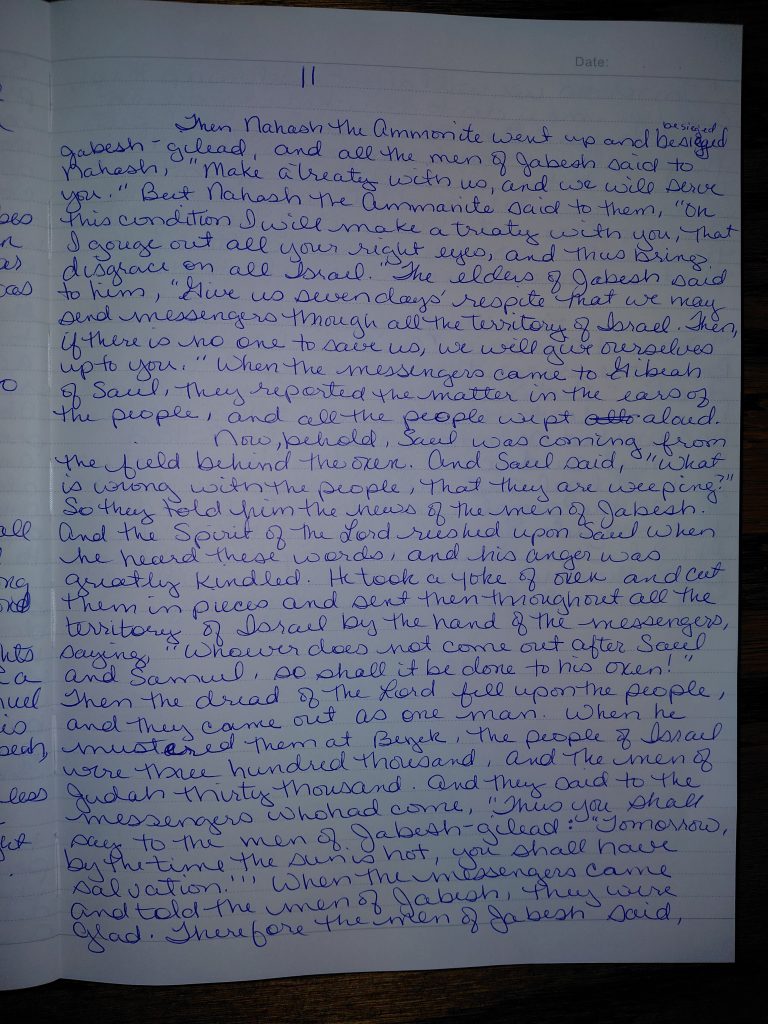 Date:
11
besieged
Then Nahash the Ammonite went up and besieged
Jabesh-gilead, and all the men of Jabesh said to
Nahash, "Make a treaty with us, and we will serve
you." But Nahash the Ammanite said to them, "On
this condition I will make a treaty with you, that
I gouge out all your right eyes, and thus bring
disgrace on all Israel." The elders of Jabesh said
to him, "Give us seven days' respite that we may
send messengers through all the territory of Israel. Then,
if there is no one to save us, we will give ourselves
up to you." When the messengers came to Gibeah
of Saul, they reported the matter in the ears of
the people, and all the people wept aloud.
Now, behold, Saul was coming from
the field behind the oxen. And Saul said, "What
is wrong with the people, that they are weeping?"
So they told him the news of the men of Jabesh.
And the Spirit of the Lord rushed upon Saul when
he heard these words, and his anger was
greatly kindled. He took a yoke of oxen and cut
them in pieces and sent them throughout all the
territory of Israel by the hand of the messengers,
saying, "Whoever does not come out after Saul
and Samuel, so shall it be done to his oxen!"
Then the dread of the Lord fell upon the people,
and they came out as one man. When he
mustered them at Bezek, the people of Israel
were three hundred thousand, and the men of
Judah thirty thousand. And they said to the
messengers who had come, "Thus you shall
say to the men of Jabesh-gilead: "Tomorrow,
by the time the sun is hot, you shall have
salvation.'" When the messengers came
and told the men of Jabesh, they were
glad. Therefore the men of Jabesh said,